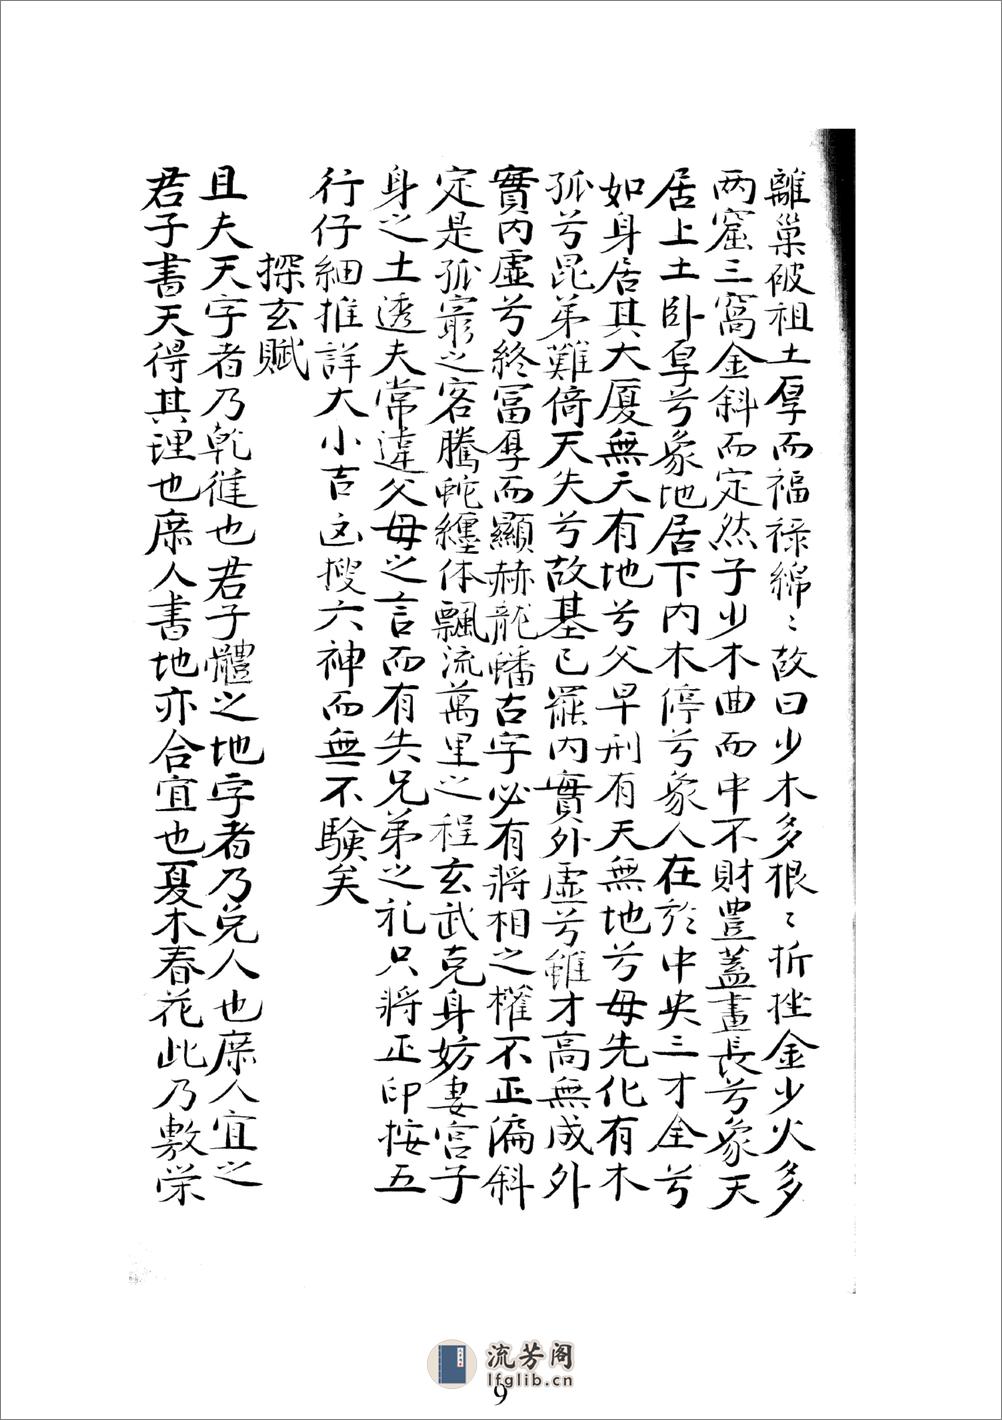 離巢破祖土厚而福祿綿〻故曰少木多根〻折挫金少火多
两窟三窩金斜而定然子少木曲而中不財豊蓋畫長兮象天
居上土卧厚兮象地居下内木停兮象人在於中央三才全兮
如身居其大厦無天有地兮父早刑有天無地兮母先化有木
孤兮昆弟難倚天失兮故基已罷内實外虚兮雖才高無成外
實内虚兮終冨厚而顯赫龍蟠古字必有將相之權不正偏斜
定是孤窮之客騰蛇纒体飄流萬里之程玄武克身妨妻宫子
身之土透夫常違父母之言而有失兄弟之礼只將正印按五
行仔細推詳大小吉凶搜六神而無不驗矣
探玄賦
且夫天字者乃乾健也君子體之地字者乃兑人也庶人宜之
君子書天得其理也庶人書地亦合宜也夏木春花此乃敷栄
流芳阁
lfglib.cn
9